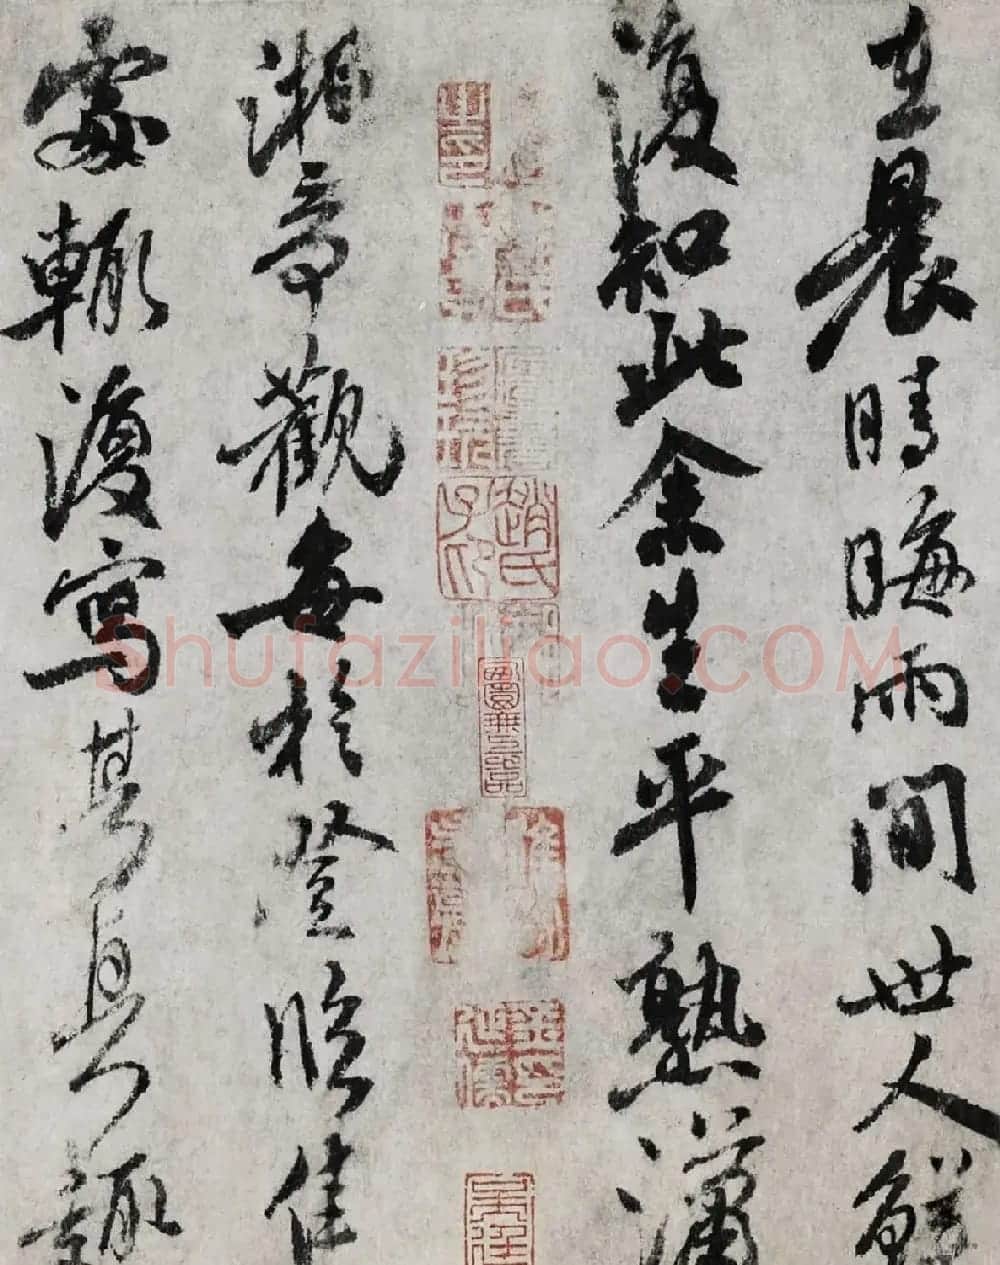 在晨晴晦雨間世人鮮
復知此余生平熟瀟
湘奇觀每於登臨佳
處輒復寫其真趣
趙氏子印
Shufaziliao.COM